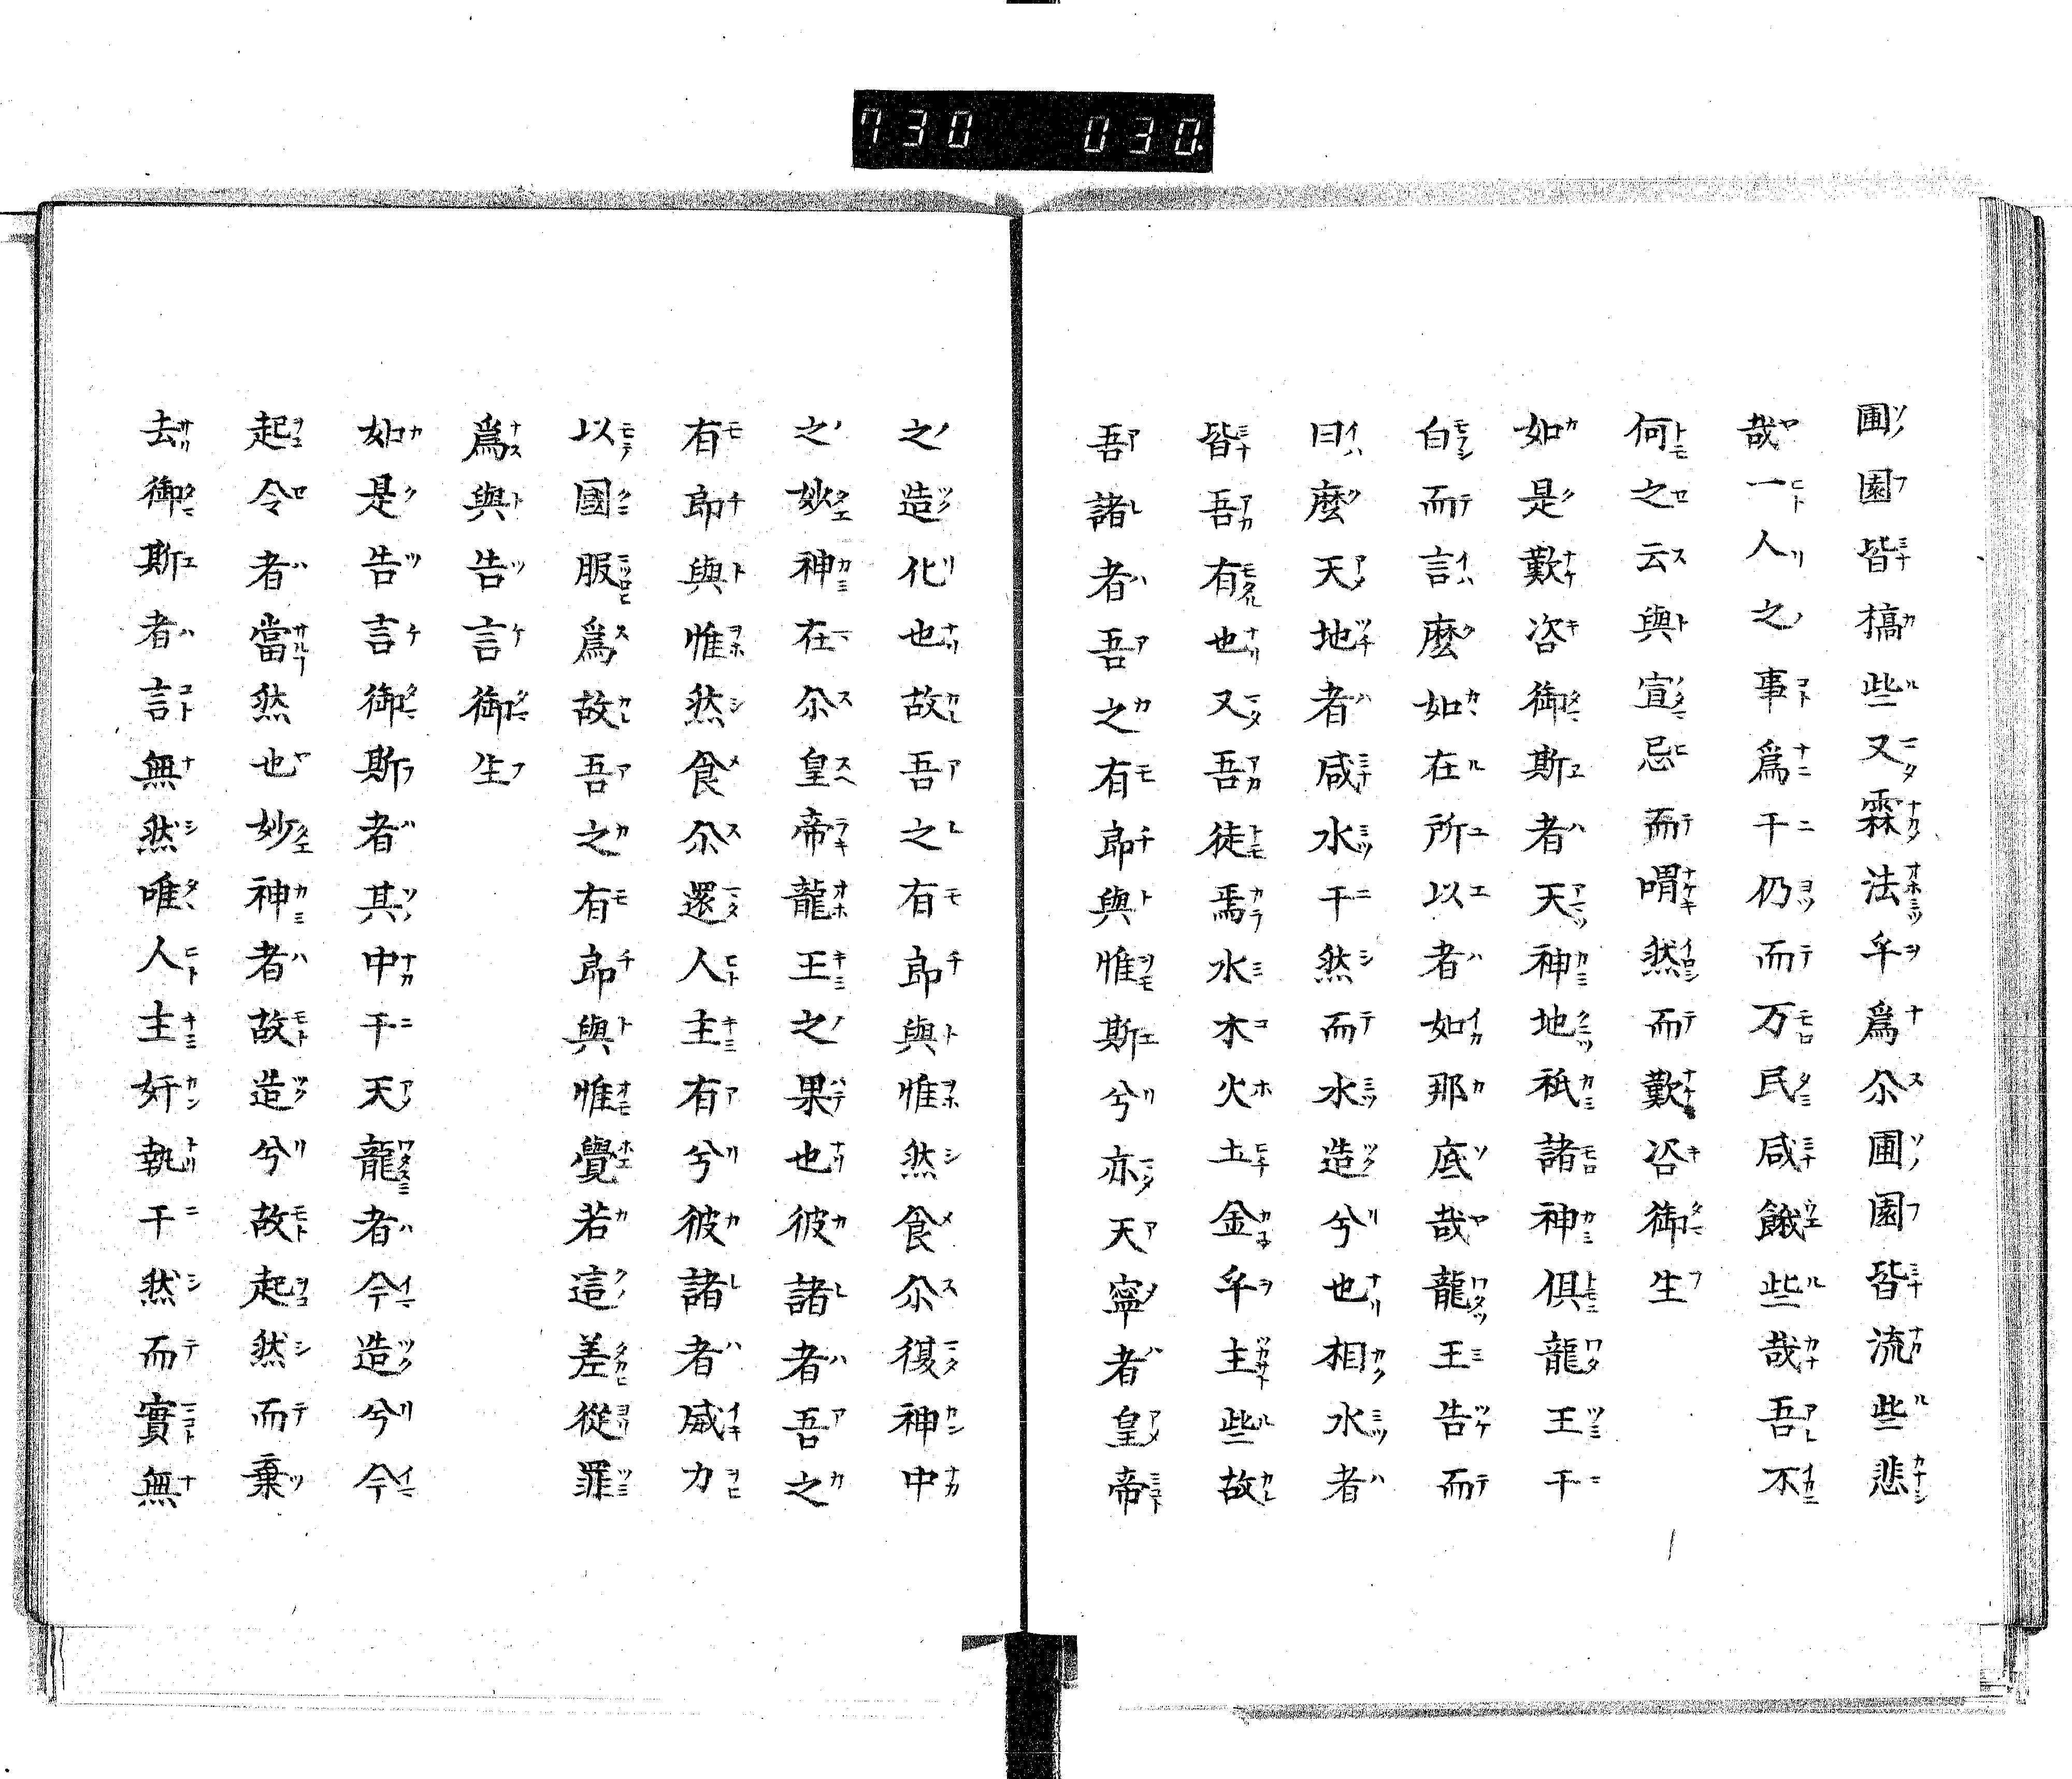 730 030.
圃園皆槁些又霖法乎爲尒圃園皆流些悲
哉一人之事爲干仍而万民咸餓些哉吾不
何之云與宣忌而喟然而歎咨御生
如是歎咨御斯者天神地祇諸神俱龍王干
白而言麼如在所以者如那底哉龍王告而
曰麼天地者咸水干然而水造兮也相水者
皆吾有也又吾徒焉水木火土金乎主些故
吾諸者吾之有郎與惟斯兮亦天寧者皇帝
之造化也故吾之有郎與惟然食尒復神中
之妙神在尒皇帝龍王之果也彼諸者吾之
有郎與惟然食尒還人主有兮彼諸者威力
以國服爲故吾之有郎與惟覺若這差從罪
爲與告言御生
如是告言御斯者其中干天龍者今造兮今
起令者當然也妙神者故造兮故起然而棄
去御斯者言無然唯人主奸執干然而實無